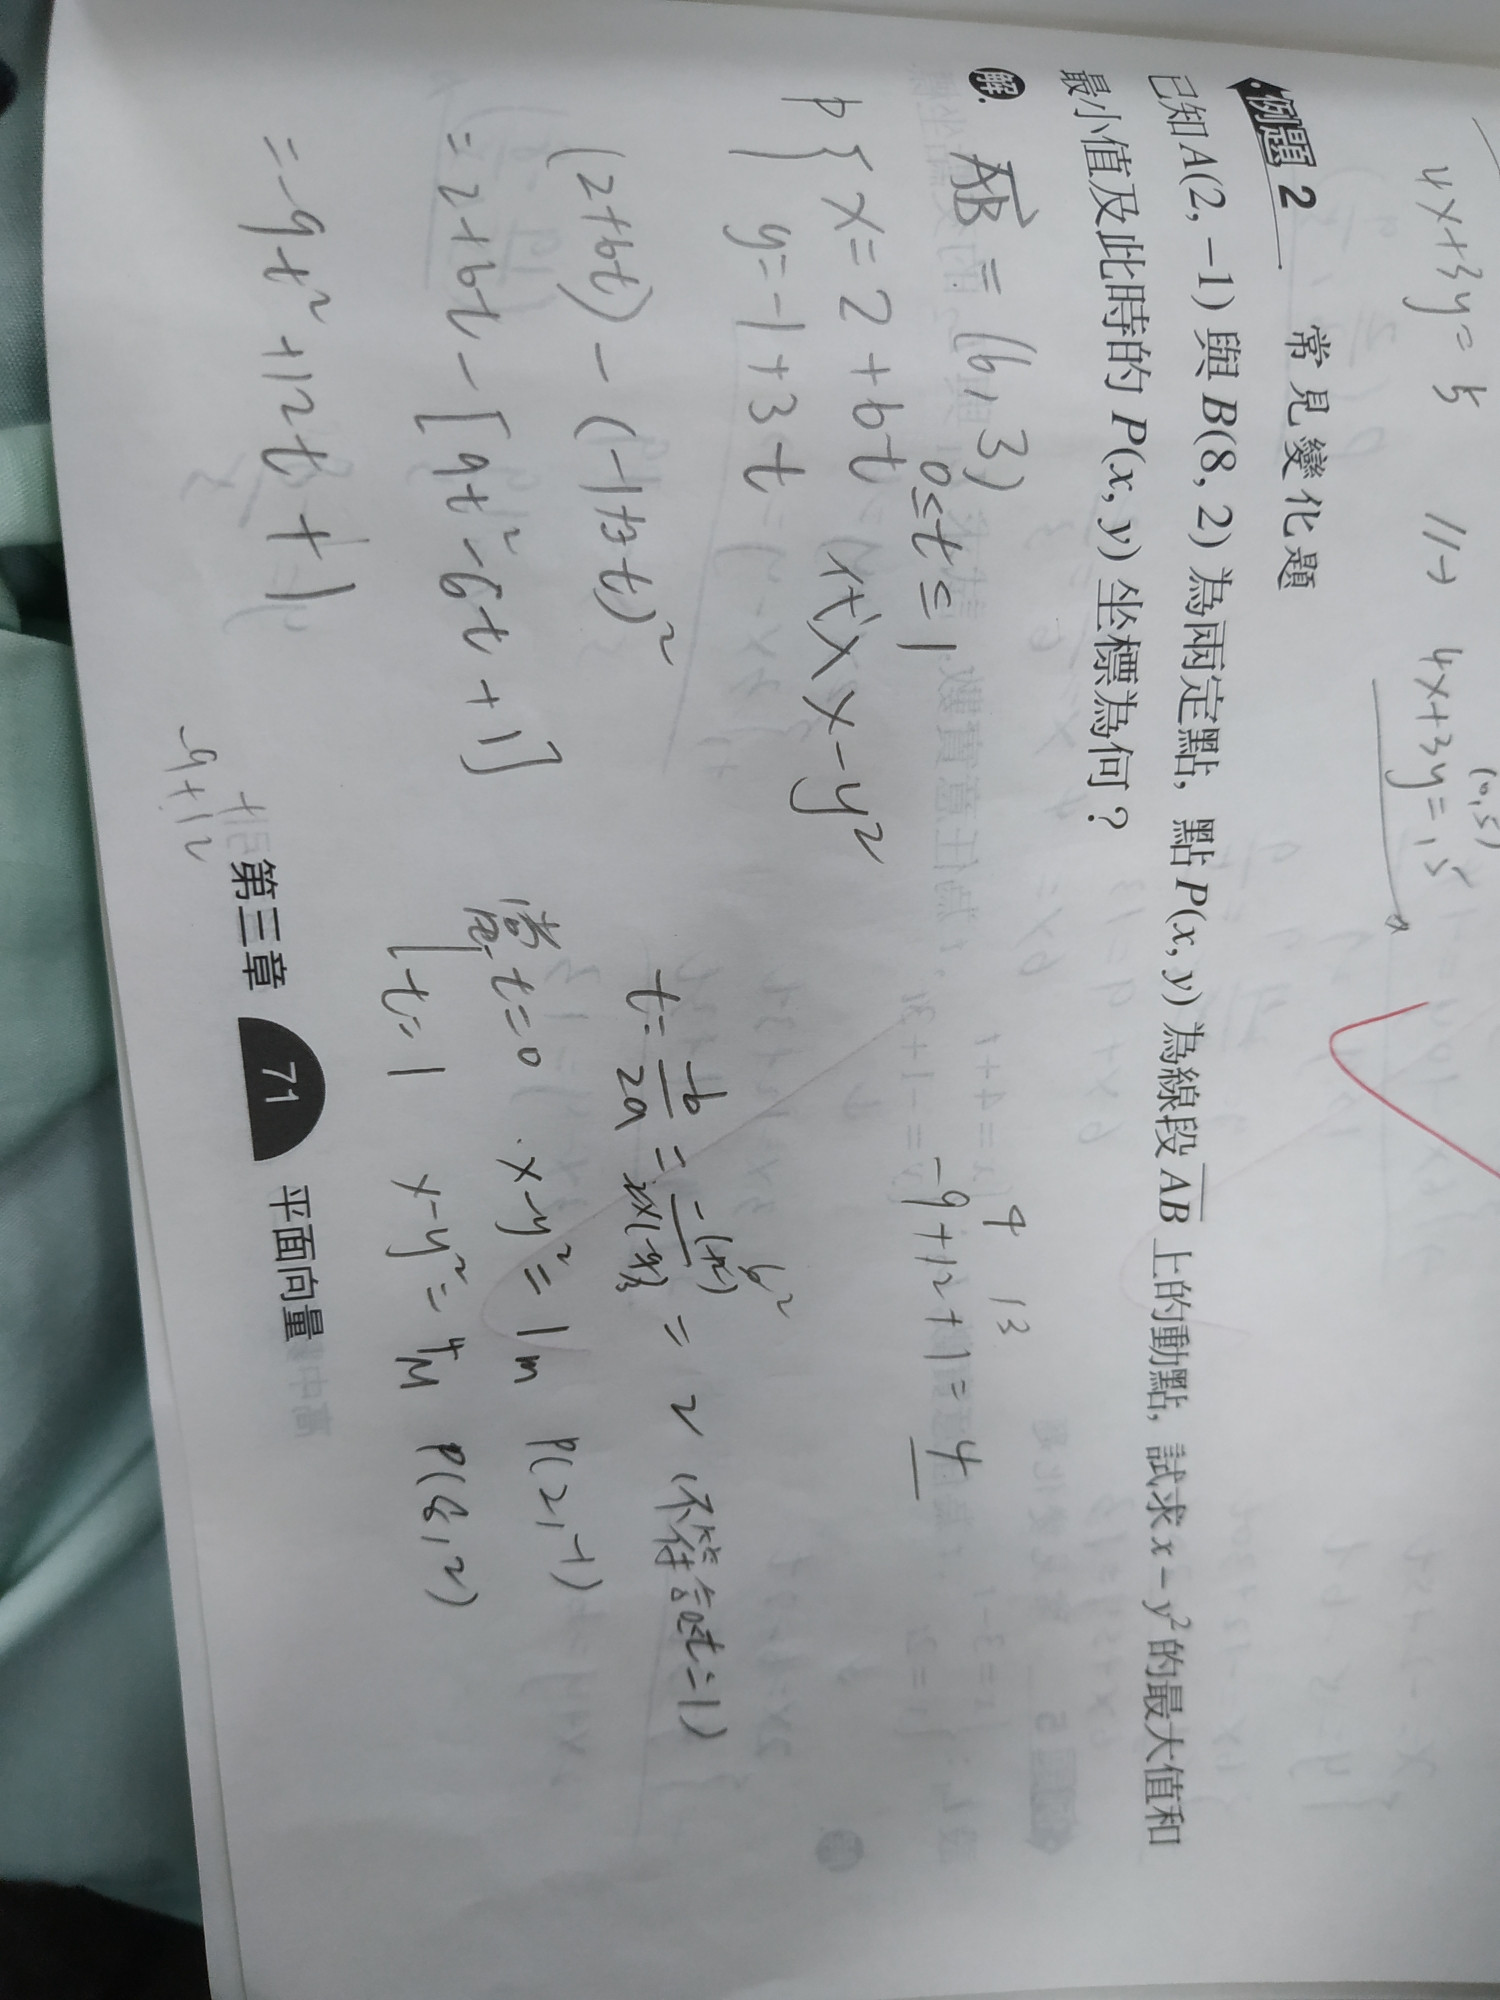 4x+3y=5 //→ 4x+3y=15
(0,5)
例題 2 常見變化題
已知A(2,-1)與B(8,2)為兩定點,點P(x,y)為線段AB上的動點,試求x-y²的最大值和
最小值及此時的P(x,y)坐標為何?
解. AB = (6, 3)
0≤t≤1
P { x=2+6t 代入x-y²
y=-1+3t
9 13
-9+12+1=4
(2+6t)-(-1+3t)²
=2+6t-[9t²-6t+1]
=-9t²+12t+1
t=-b/2a = -(12)/2×(-9) = 2 (不符合t=1)
當 t=0 x-y²=1 m P(2,-1)
t=1 x-y²=4 M P(8,2)
-9+12
第三章 71 平面向量